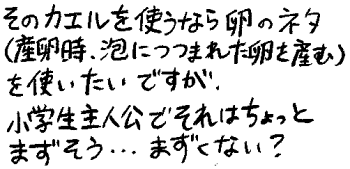 そのカエルを使うなら卵のネタ
(産卵時、泡につつまれた卵を産む)
を使いたいですが、
小学生主人公でそれはちょっと
まずそう…まずくない?